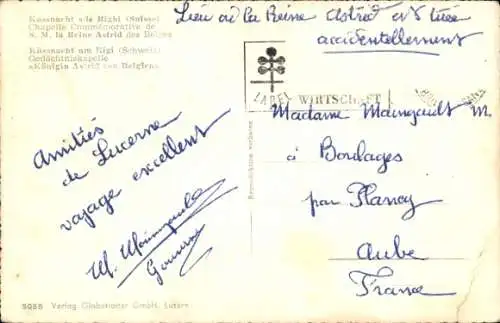 Küssnacht s/le Righi (Suisse)
Chapelle Commémorative de
S. M. la Reine Astrid des Belges
Küssnacht am Rigi (Schweiz)
Gedächtniskapelle
«Königin Astrid von Belgien»
Lieu où la Reine Astrid est tuée
accidentellement
LABEL WIRTSCHAFT
Amitiés
de Lucerne
voyage excellent
Madame Maingault M.
à Boulages
par Plancy
Aube
France
5055 Verlag Globetrotter GmbH. Luzern